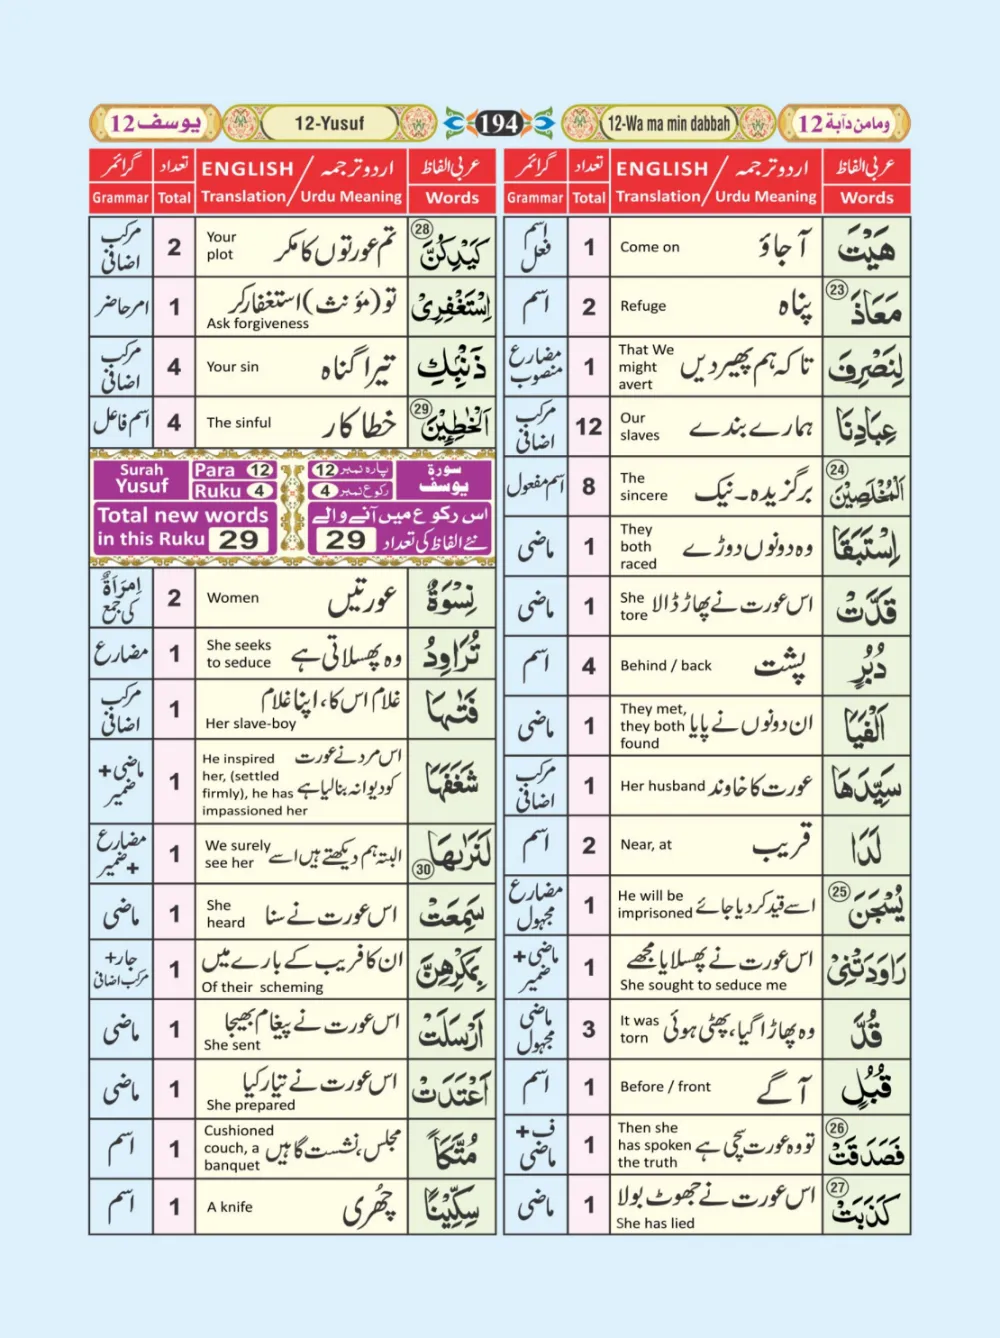 وما من دآبة 12
12-Wa ma min dabbah
194
12-Yusuf
یوسف 12
عربی الفاظ اردو ترجمہ / ENGLISH تعداد گرائمر
Words Urdu Meaning / Translation Total Grammar
هَيْتَ آ جاؤ Come on 1 اسم فعل
مَعَاذَ ㉓ پناہ Refuge 2 اسم
لِنَصْرِفَ تا کہ ہم پھیر دیں That We might avert 1 مضارع منصوب
عِبَادِنَا ہمارے بندے Our slaves 12 مرکب اضافی
الْمُخْلَصِيْنَ ㉔ برگزیدہ۔نیک The sincere 8 اسم مفعول
اِسْتَبَقَا وہ دونوں دوڑے They both raced 1 ماضی
قَدَّتْ اس عورت نے پھاڑ ڈالا She tore 1 ماضی
دُبُرٍ پشت Behind / back 4 اسم
اَلْفَيَا ان دونوں نے پایا They met, they both found 1 ماضی
سَيِّدَهَا عورت کا خاوند Her husband 1 مرکب اضافی
لَدَا قریب Near, at 2 اسم
يُسْجَنَ ㉕ اسے قید کر دیا جائے He will be imprisoned 1 مضارع مجہول
رَاوَدَتْنِيْ اس عورت نے پھسلایا مجھے She sought to seduce me 1 ماضی + ضمیر
قُدَّ وہ پھاڑا گیا، پھٹی ہوئی It was torn 3 ماضی مجہول
قُبُلٍ آگے Before / front 1 اسم
فَصَدَقَتْ ㉖ تو وہ عورت سچی ہے Then she has spoken the truth 1 ف + ماضی
كَذَبَتْ ㉗ اس عورت نے جھوٹ بولا She has lied 1 ماضی
عربی الفاظ اردو ترجمہ / ENGLISH تعداد گرائمر
Words Urdu Meaning / Translation Total Grammar
كَيْدِكُنَّ ㉘ تم عورتوں کا مکر Your plot 2 مرکب اضافی
اِسْتَغْفِرِيْ تو (مؤنث) استغفار کر Ask forgiveness 1 امر حاضر
ذَنْبِكِ تیرا گناہ Your sin 4 مرکب اضافی
الْخٰطِئِيْنَ ㉙ خطا کار The sinful 4 اسم فاعل
Surah Yusuf Para 12 پارہ نمبر 12 سورة یوسف
Ruku 4 رکوع نمبر 4
Total new words in this Ruku 29
اس رکوع میں آنے والے نئے الفاظ کی تعداد 29
نِسْوَةٌ عورتیں Women 2 اِمْرَأَةٌ کی جمع
تُرَاوِدُ وہ پھسلاتی ہے She seeks to seduce 1 مضارع
فَتٰىهَا غلام اس کا، اپنا غلام Her slave-boy 1 مرکب اضافی
شَغَفَهَا اس مرد نے عورت کو دیوانہ بنا لیا ہے He inspired her, (settled firmly), he has impassioned her 1 ماضی + ضمیر
لَنَرٰىهَا ㉚ البتہ ہم دیکھتے ہیں اسے We surely see her 1 مضارع + ضمیر
سَمِعَتْ اس عورت نے سنا She heard 1 ماضی
بِمَكْرِهِنَّ ان کا فریب کے بارے میں Of their scheming 1 جار + مرکب اضافی
اَرْسَلَتْ اس عورت نے پیغام بھیجا She sent 1 ماضی
اَعْتَدَتْ اس عورت نے تیار کیا She prepared 1 ماضی
مُتَّكَاً مجلس، نشست گاہیں Cushioned couch, a banquet 1 اسم
سِكِّيْنًا چھری A knife 1 اسم